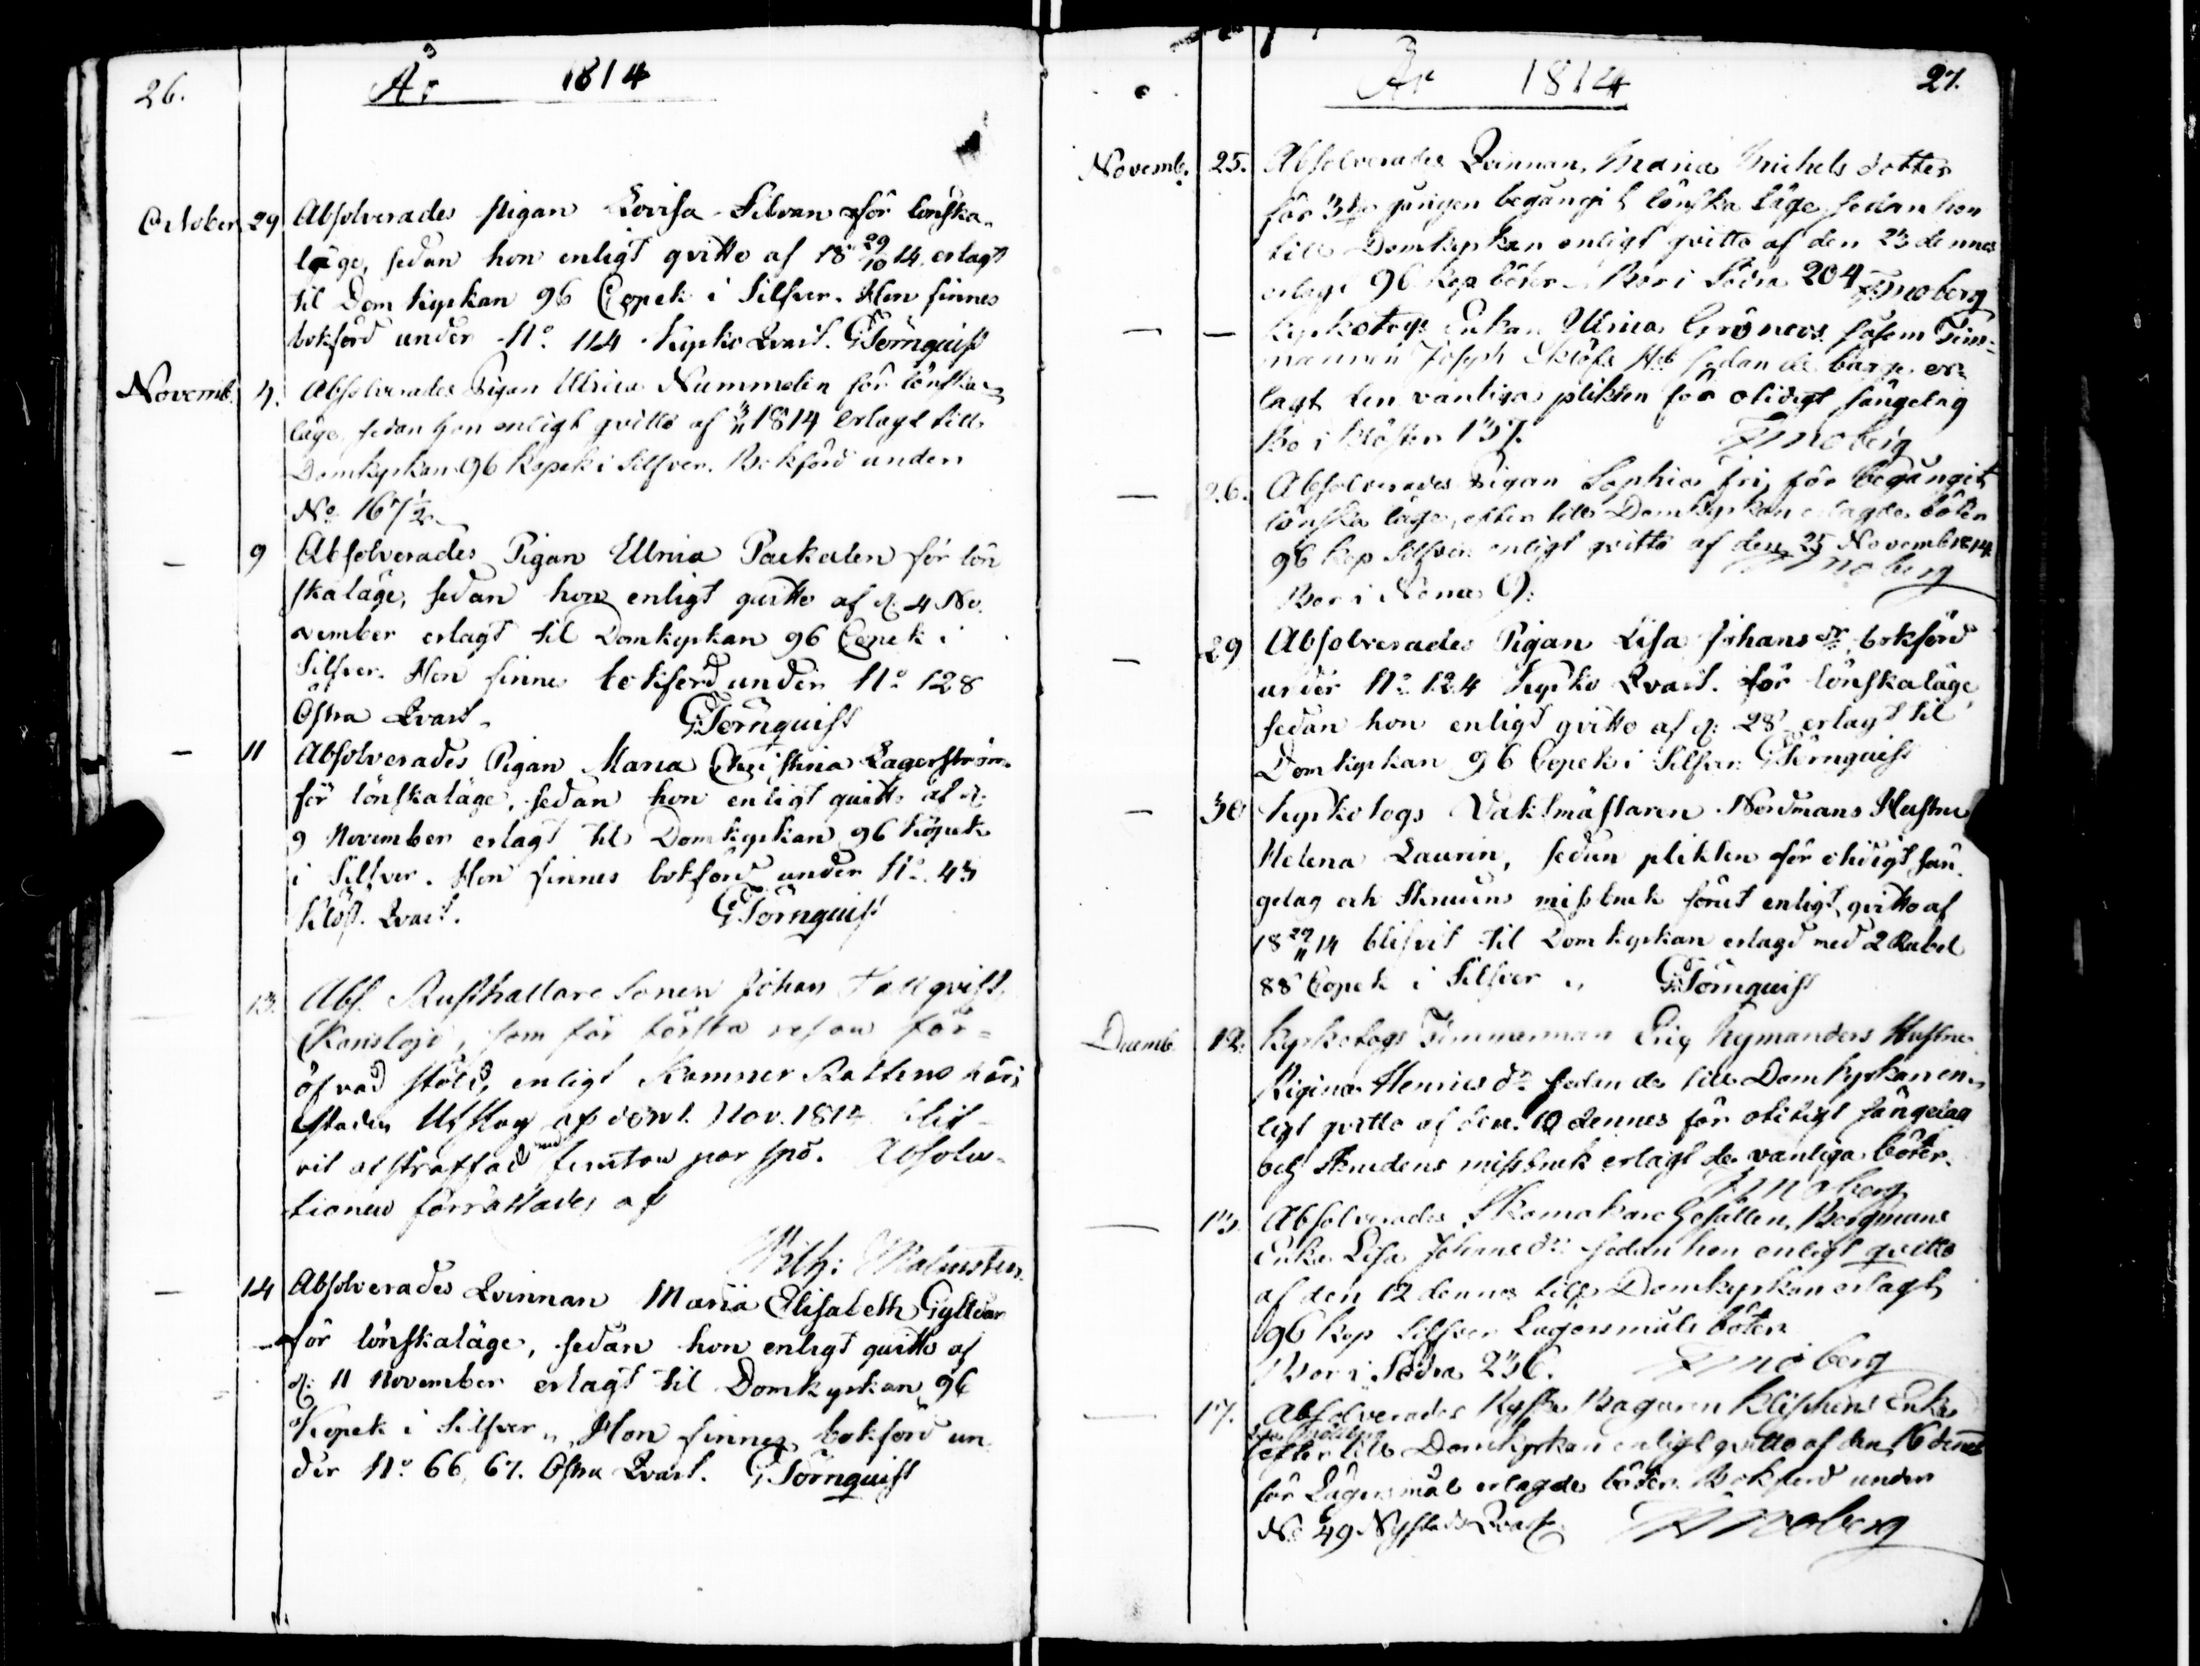 26.
År 1814
October 29 Absolverades pigan Lovisa Silvan för lönska-
läge, sedan hon enligt qvitto af 18 29/10 14 erlagt
til Domkyrkan 96 Copek i Silfver. Hon finnes
bokförd under No. 114 Kyrko Qvart. GTörnquist
Novemb. 4. Absolverades Pigan Ulrica Nummelin för lönska
läge, sedan hon enligt qvitto af 3/11 1814 erlagt till
Domkyrkan 96 kopek i Silfver. Bokförd under
No 167 1/2
— 9 Absolverades Pigan Ulrica Packalen för lön
skaläge, sedan hon enligt qvitto af d: 4 No-
vember erlagt til Domkyrkan 96 Copek i
Silfver. Hon finnes bokförd under No 128
Östra Qvart. GTörnquist
— 11 Absolverades Pigan Maria Christina Lagerström
för lönskaläge, sedan hon enligt quitto af d:
9 November erlagt til Domkyrkan 96 Kopek
i Silfver. Hon finnes bokförd under No. 43
Klöst. Qvart. GTörnquist
13. Abs. Rusthållare Sonen Johan Tallqvist
som för första resan för-
öfvad stöld, enligt Kämner Rättens här i
staden Utslag af den 1. Nov. 1814 blif-
vit afstraffad med femton par spö. Absolu-
tionen förrättades af
Wilh: Malmsten
— 14 Absolverades Qvinnan Maria Elisabeth Gylldar
för lönskaläge, sedan hon enligt quitto af
d: 11 November erlagt til Domkyrkan 96
Kopek i Silfver, Hon finnes bokförd un-
der No 66, 67. Östra Qvart. GTörnquist
År 1814 27.
Novemb. 25. Absolverades Qvinnan Maria Michels dotter
för 3dje gången begångit lönska läge sedan hon
till Domkyrkan enligt qvitto af den 23 dennes
erlagt 96 kop böter. Bor i Södra 204 Moberg
— — Kyrkotogs Enkan Ulrica Grönroos såsom Tim-
mannen Joseph H:st sedan de begge er-
lagt den vanliga plikten för otidigt sängelag
Bo i Kloster 137. Moberg
— 26. Absolverades Pigan Sophia Fri för begångit
lönska läge, efter till Domkyrkan erlagde böter
96 kop Silfver enligt qvitto af den 25 Novemb 1814
Bor i Norra 9. Moberg
— 29 Absolverades Pigan Lisa Johansdr, bokförd
under No. 124 Kyrko Qvart. för lönskaläge
sedan hon enligt qvitto af d: 28 erlagt til
Domkyrkan 96 Copek i Silfver. GTörnquist
— 30 Kyrkotogs Vaktmästaren Nordmans Hustru
Helena Laurin, sedan plikten för otidigt sän-
gelag och Skrudens missbruk förut enligt qvitto af
18 29/11 14 blifvit til Domkyrkan erlagd med 2 Rubel
88 Copek i Silfver. GTörnquist
Decemb. 12. Kyrkotogs Timmerman Eric Nymanders Hustru
Regina Henricsdr sedan de till Domkyrkan en-
ligt qvitto af den 10 dennes för otidigt sängelag
och Skrudens missbruk erlagt de vanliga böter.
Moberg
— 13. Absolverades Skomakare Gesällen Bergmans
Enka Lisa Johansdr sedan hon enligt qvitto
af den 12 dennes till Domkyrkan erlagt
96 kop Silfver Lägersmåls böter
Bor i Södra 236. Moberg
— 17. Absolverades Ryska Bagaren Enka
efter till Domkyrkan enligt qvitto af den 16 dennes
för Lägersmål erlagde böter. Bokförd under
No 49 Nystads Qvart. Moberg